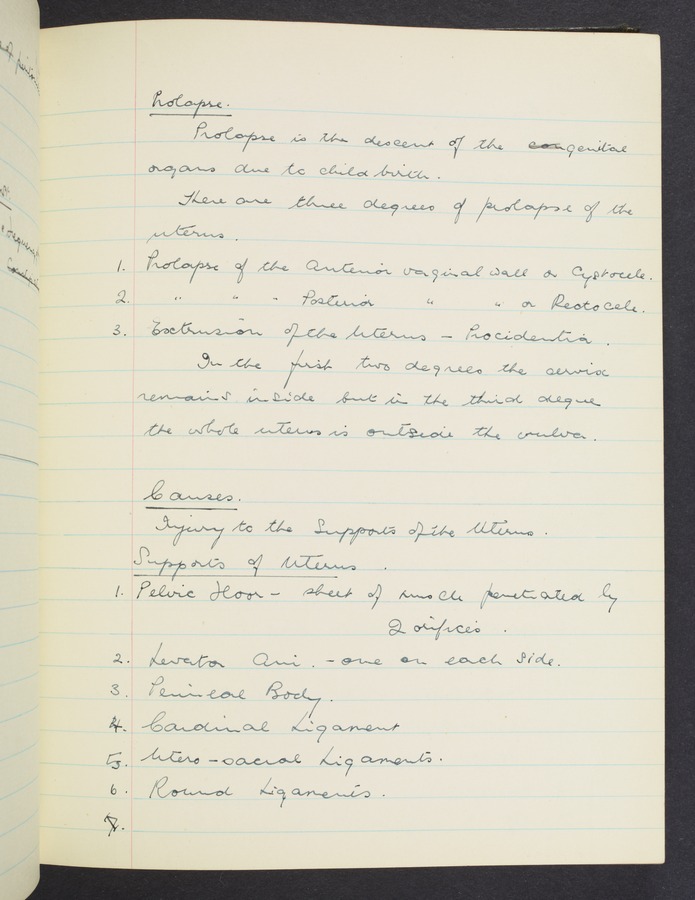 Prolapse.
Prolapse is the descent of the con genital
organs due to child birth.
There are three degrees of prolapse of the
uterus.
1. Prolapse of the anterior vaginal wall or Cystocele.
2. " " " Posterior " " or Rectocele.
3. Extrusion of the Uterus – Procidentia.
In the first two degrees the cervix
remains inside but in the third degree
the whole uterus is outside the vulva.
Causes.
Injury to the Supports of the Uterus.
Supports of Uterus.
1. Pelvic Floor – sheet of muscle penetrated by
2 orifices.
2. Levator Ani. – one on each side.
3. Perineal Body.
4. Cardinal Ligament
5. Utero-sacral Ligaments.
6. Round Ligaments.
7.